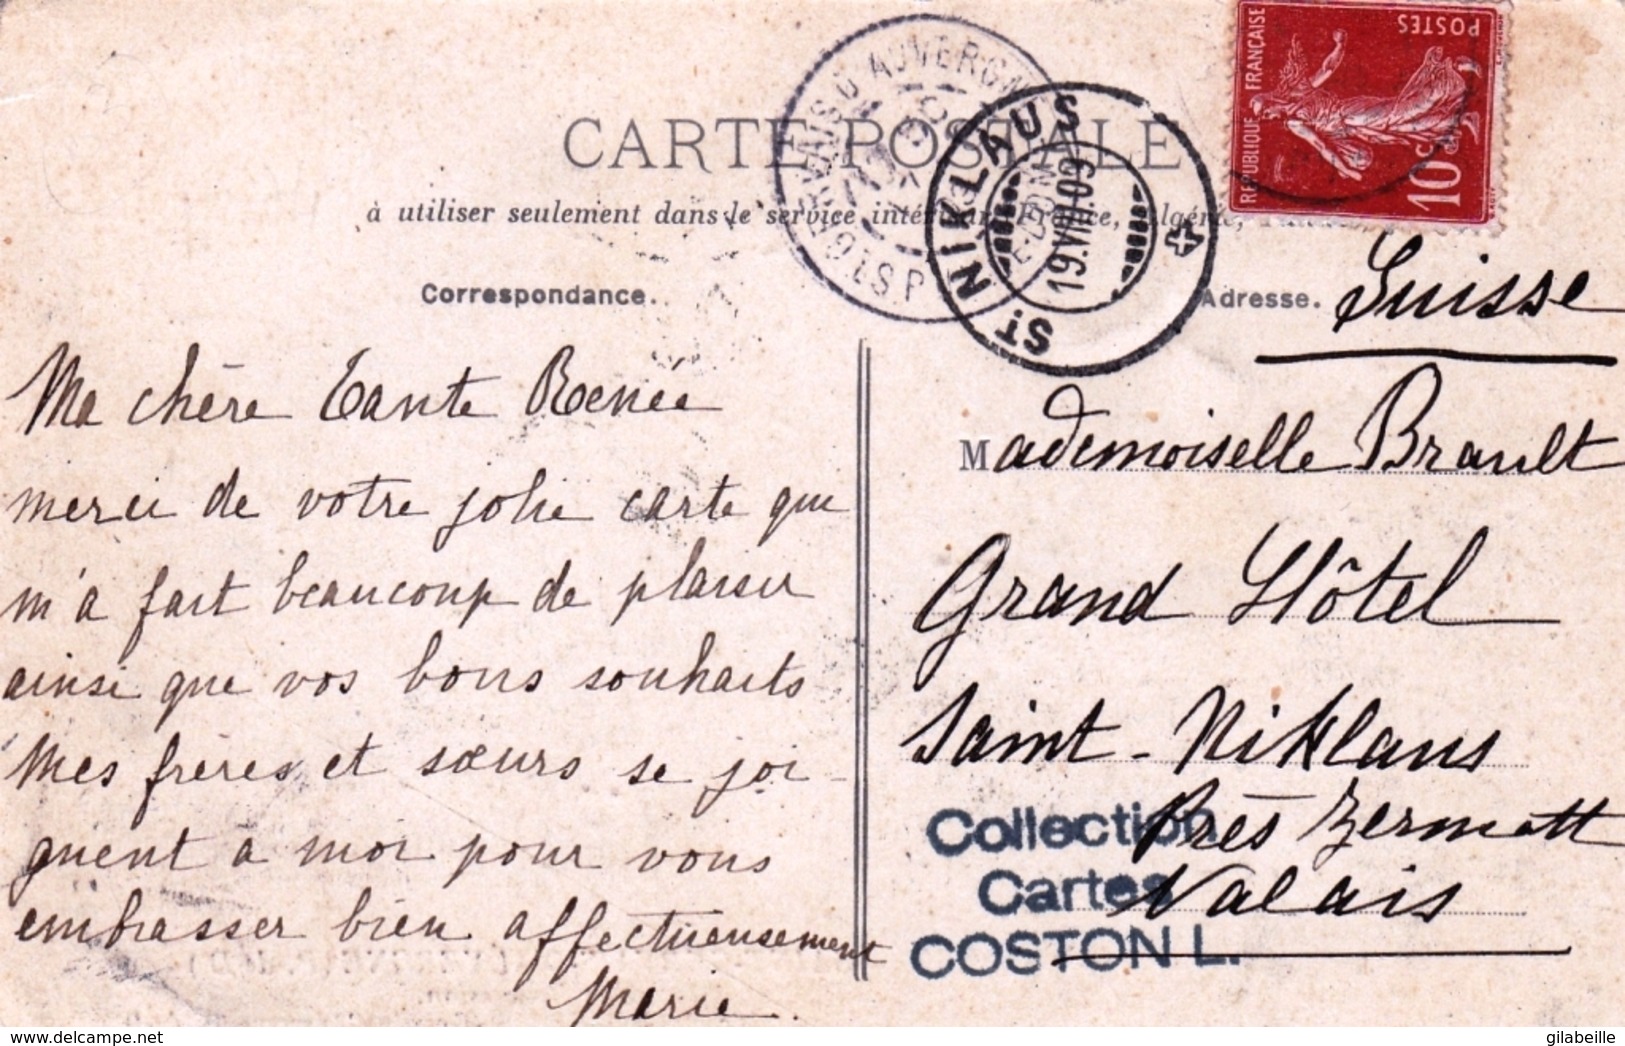 CARTE POSTALE
à utiliser seulement dans le service intérieur, France, Algérie,
Correspondance.
Adresse.
REPUBLIQUE FRANÇAISE
POSTES
10 C
St NIKLAUS
19.VIII.09
D'AUVERGNE
Ma chère Tante Renée
merci de votre jolie carte que
m'a fait beaucoup de plaisir
ainsi que vos bons souhaits
Mes frères et sœurs se joi-
gnent à moi pour vous
embrasser bien affectueusement
Marie.
Suisse
Mademoiselle Brault
Grand Hôtel
Saint-Niklaus
Près Zermatt
Valais
Collection
Cartes
COSTON L.
gilabeille